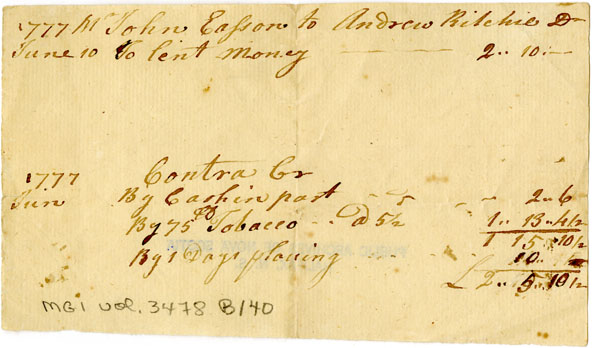 1777 Mr John Easson to Andrew Ritchie Dr
June 10 To Lent Money 2.. 10..—
1777 Contra Cr
Jun By Cash in part 2.. 6
By 75 lb Tobacco @ 5½ 1.. 13.. 4½
1 15.. 10½
By 1 Days plowing 10..
£ 2.. 5.. 10½
MG1 vol. 3478 B/40